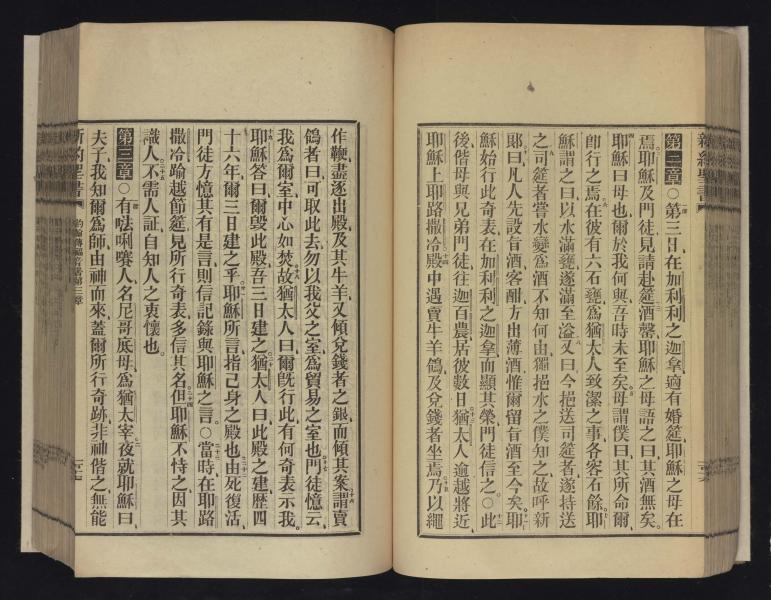 新約聖書
第二章○第三日在加利利之迦拿適有婚筵耶穌之母在
焉耶穌及門徒見請赴筵酒罄耶穌之母語之曰其酒無矣
耶穌曰母也爾於我何與吾時未至矣母謂僕曰其所命爾
卽行之焉在彼有六石甕爲猶太人致潔之事各容石餘耶
穌謂之曰以水滿甕遂滿至溢又曰今挹送司筵者遂持送
之司筵者嘗水變爲酒不知何由獨挹水之僕知之故呼新
郞曰凡人先設旨酒客酣方出薄酒惟爾留旨酒至今矣耶
穌始行此奇表在加利利之迦拿而顯其榮門徒信之○此
後偕母與兄弟門徒往迦百農居彼數日猶太人逾越將近
耶穌上耶路撒冷殿中遇賣牛羊鴿及兌錢者坐焉乃以繩
作鞭盡逐出殿及其牛羊又傾兌錢者之銀而傾其案謂賣
鴿者曰可取此去勿以我父之室爲貿易之室也門徒憶云
我爲爾室中心如焚故猶太人曰爾旣行此有何奇表示我
耶穌答曰爾毀此殿吾三日建之猶太人曰此殿之建歷四
十六年爾三日建之乎耶穌所言指己身之殿也由死復活
門徒方憶其有是言則信記錄與耶穌之言○當時在耶路
撒冷踰越節筵見所行奇表多信其名但耶穌不恃之因其
識人不需人証自知人之衷懷也
第三章○有𠵽唎㘔人名尼哥底母爲猶太宰夜就耶穌曰
夫子我知爾爲師由神而來蓋爾所行奇跡非神偕之無能
新約聖書 約翰傳福音書第三章